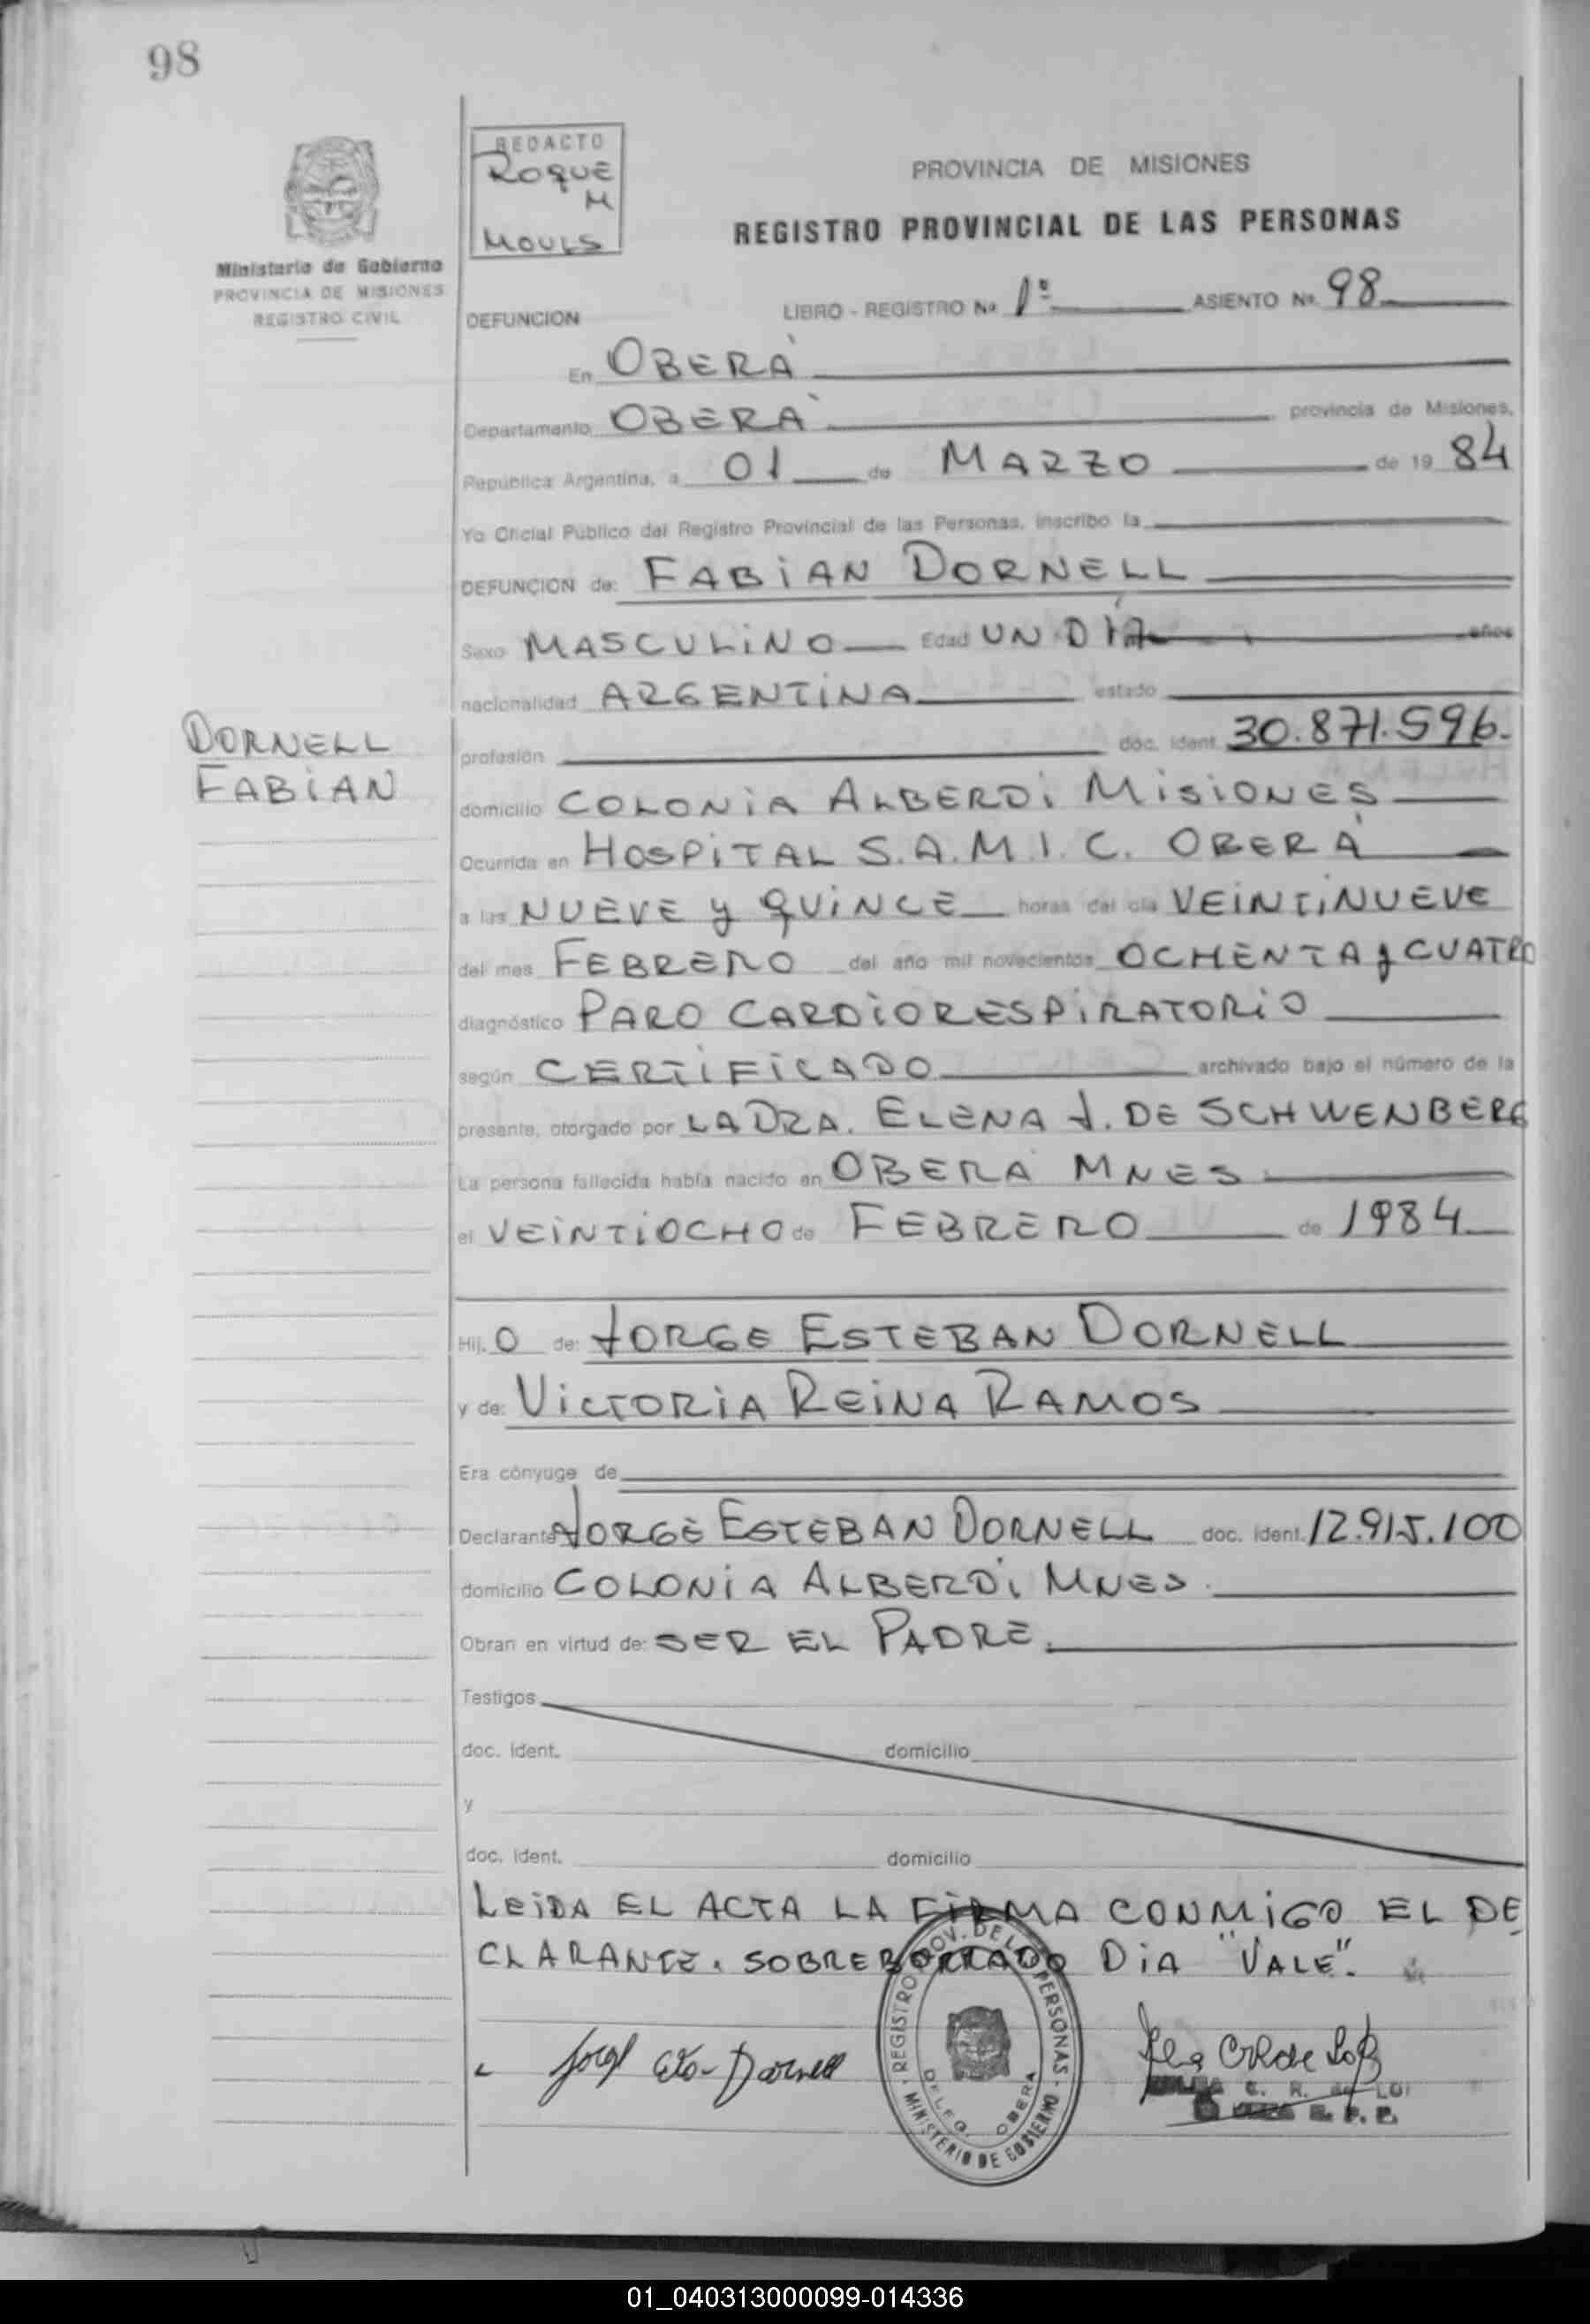 98
REDACTO
ROQUE
M
MOULS
Ministerio de Gobierno
PROVINCIA DE MISIONES
REGISTRO CIVIL
PROVINCIA DE MISIONES
REGISTRO PROVINCIAL DE LAS PERSONAS
DEFUNCION LIBRO - REGISTRO No 1º ASIENTO No. 98
En OBERÁ
Departamento OBERÁ provincia de Misiones,
República Argentina, a 01 de MARZO de 19 84
Yo Oficial Público del Registro Provincial de las Personas, inscribo la
DEFUNCION de: FABIAN DORNELL
Sexo MASCULINO Edad UN DÍA años
nacionalidad ARGENTINA estado
DORNELL
FABIAN
profesión doc. ident. 30.871.596.
domicilio COLONIA ALBERDI MISIONES
Ocurrida en HOSPITAL S.A.M.I.C. OBERÁ
a las NUEVE y QUINCE horas del día VEINTINUEVE
del mes FEBRERO del año mil novecientos OCHENTA y CUATRO
diagnóstico PARO CARDIORESPIRATORIO
según CERTIFICADO archivado bajo el número de la
presente, otorgado por LA DRA. ELENA J. DE SCHWENBERG
La persona fallecida había nacido en OBERA MNES
el VEINTIOCHO de FEBRERO de 1984
Hij. O de: JORGE ESTEBAN DORNELL
y de: VICTORIA REINA RAMOS
Era cónyuge de
Declarante JORGE ESTEBAN DORNELL doc. ident. 12.915.100
domicilio COLONIA ALBERDI MNES.
Obran en virtud de: SER EL PADRE.
Testigos
doc. ident. domicilio
y
doc. ident. domicilio
LEIDA EL ACTA LA FIRMA CONMIGO EL DE
CLARANTE. SOBREBORRADO DIA "VALE".
REGISTRO PROV. DE LAS PERSONAS
MINISTERIO DE GOBIERNO
DELEG. OBERA
Dornell
C. R. de
01_040313000099-014336